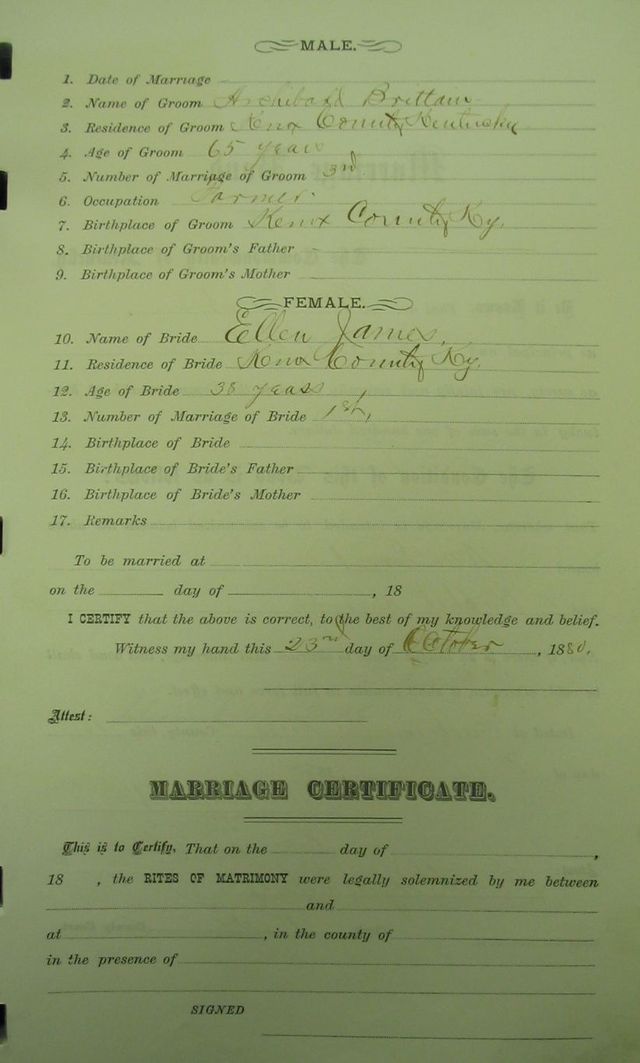 MALE.
1. Date of Marriage
2. Name of Groom Archibald Brittain
3. Residence of Groom Knox County Kentucky
4. Age of Groom 65 years
5. Number of Marriage of Groom 3rd
6. Occupation Farmer.
7. Birthplace of Groom Knox County Ky.
8. Birthplace of Groom's Father
9. Birthplace of Groom's Mother
FEMALE.
10. Name of Bride Ellen James.
11. Residence of Bride Knox County Ky.
12. Age of Bride 38 years
13. Number of Marriage of Bride 1st,
14. Birthplace of Bride
15. Birthplace of Bride's Father
16. Birthplace of Bride's Mother
17. Remarks
To be married at
on the day of , 18
I CERTIFY that the above is correct, to the best of my knowledge and belief.
Witness my hand this 23rd day of October , 1880.
Attest:
MARRIAGE CERTIFICATE.
This is to Certify, That on the day of ,
18 , the RITES OF MATRIMONY were legally solemnized by me between
and
at , in the county of
in the presence of
SIGNED